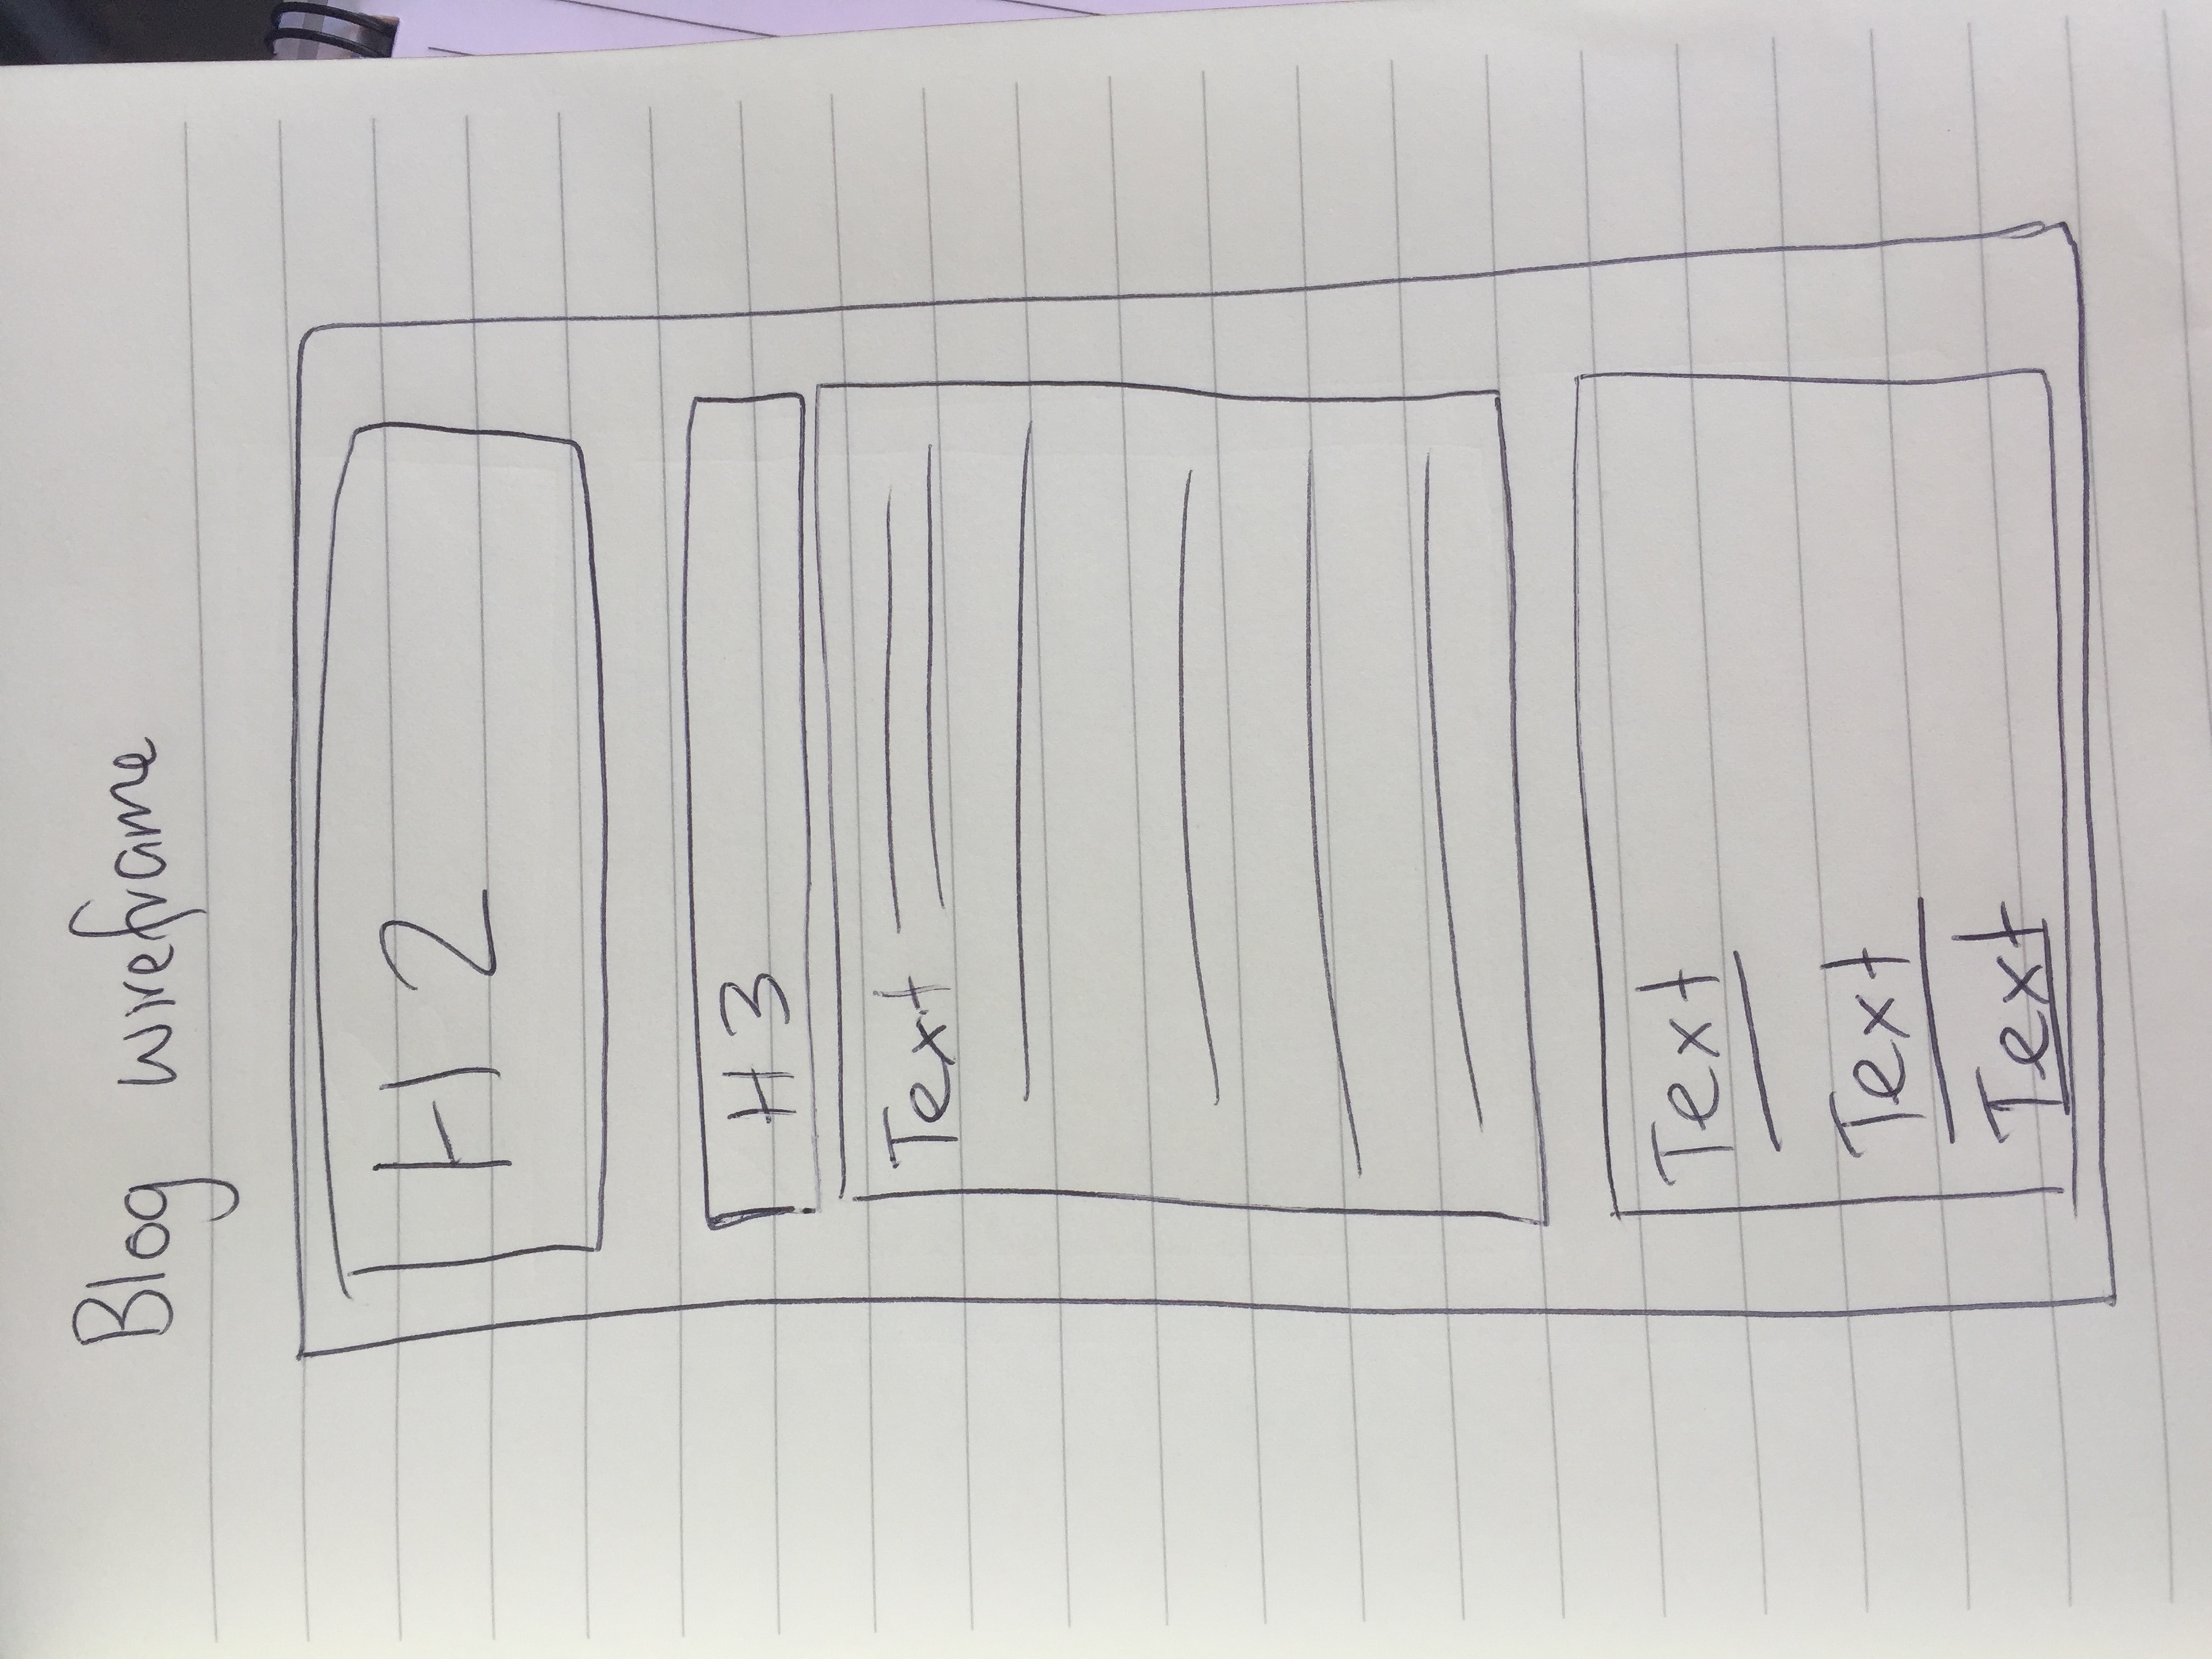 Blog wireframe
H2
H3
Text
Text
Text
Text